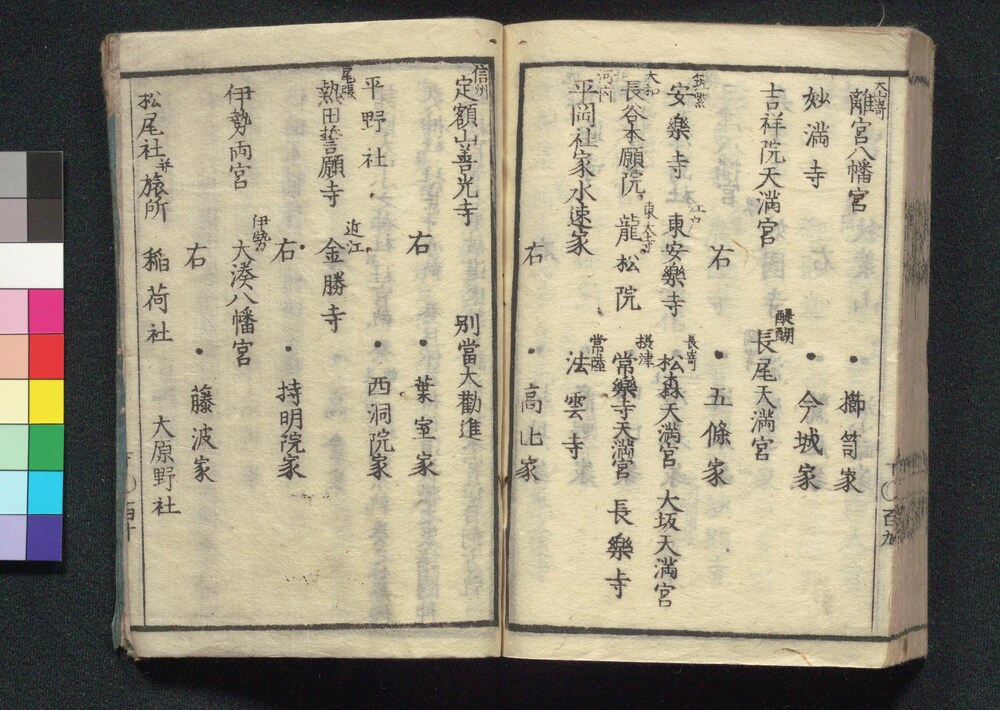 大嵜 離宮八幡宮 • 櫛笥家
妙満寺 • 今城家
吉祥院天満宮 醍醐 長尾天満宮
右 • 五條家
筑紫 安樂寺 江戸 東安樂寺 長嵜 松森天満宮 大坂天満宮
大和 長谷本願院 東大寺 龍松院 摂津 常樂寺天満宮 長樂寺
河内 平岡社家水速家 常陸 法雲寺
右 • 高辻家
百九
信州 定額山善光寺 別當大勸進
右 • 葉室家
平野社 • 西洞院家
尾張 熱田誓願寺 近江 金勝寺
右 • 持明院家
伊勢両宮 伊勢 大湊八幡宮
右 • 藤波家
松尾社并旅所 稲荷社 大原野社
百十